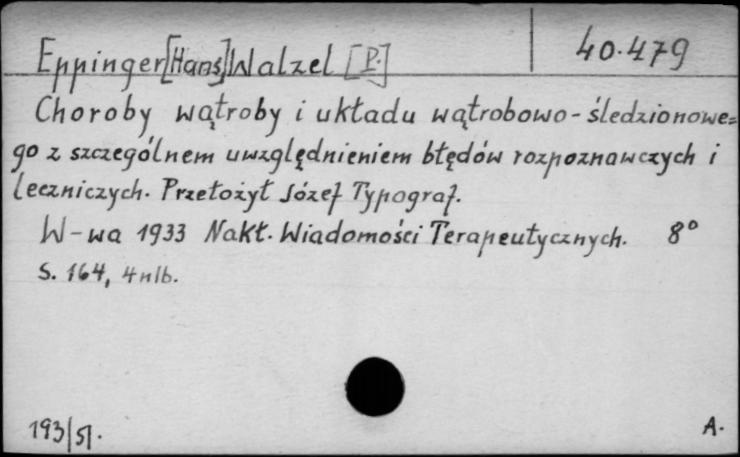 Eppinger [Hans] Walzel [P.] 40.479
Choroby wątroby i układu wątrobowo-śledzionowe=
go z szczególnem uwzględnieniem błędów rozpoznawczych i
leczniczych. Przełożył Józef Typograf.
W-wa 1933 Nakł. Wiadomości Terapeutycznych. 8°
S. 164, 4 nlb.
193/51. A.